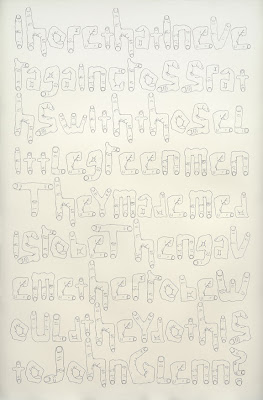 IhopethatIneve
ragaincrosspat
hswiththosel
ittlegreenmen
Theymademed
isrobeThengav
emetheProbeW
ouldtheydothis
toJohnGlenn?